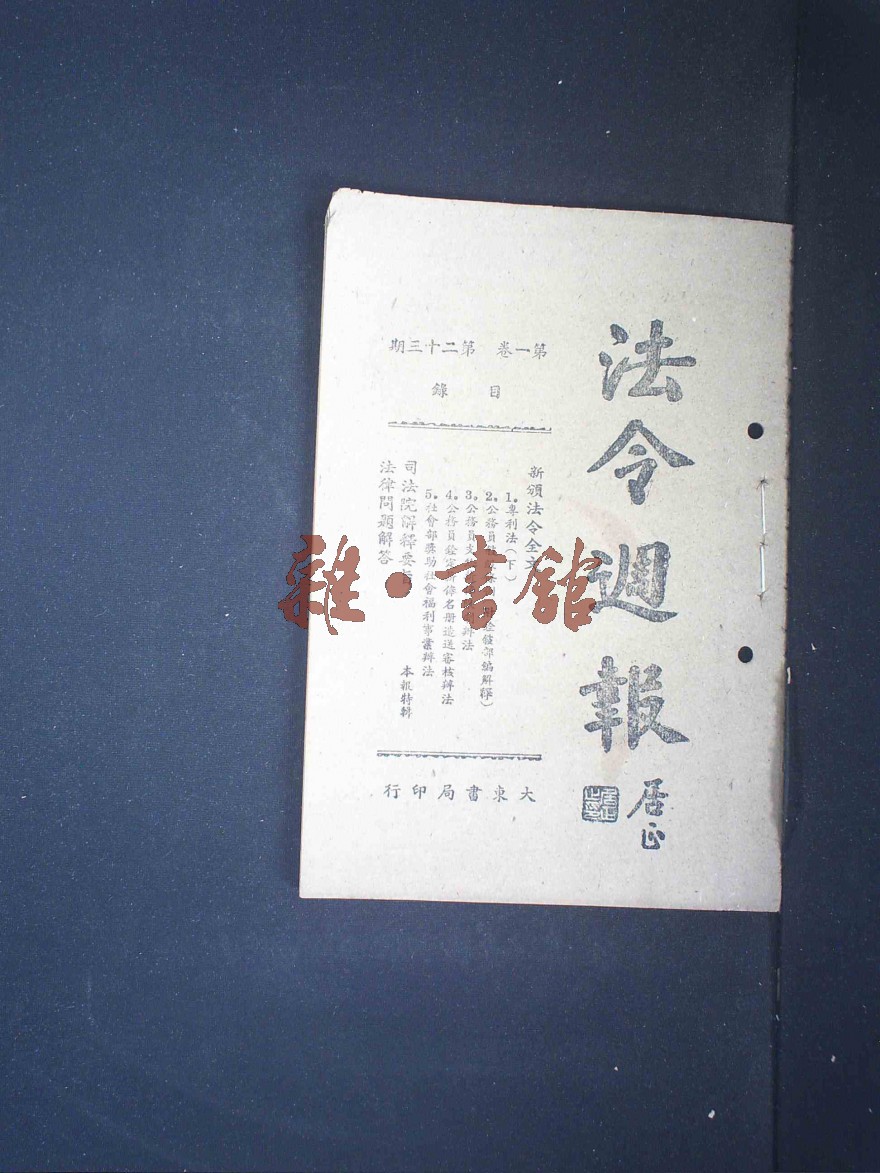 法令週報
居正
居正之印
第一卷 第二十三期
目錄
新頒法令全文
1。專利法（下）
2。公務員 銓敍部編解釋）
3。公務員 辦法
4。公務員銓 名册造送審核辦法
5。社會部獎助社會福利事業辦法
司法院解釋要旨
法律問題解答
本報特輯
大東書局印行
雜·書館